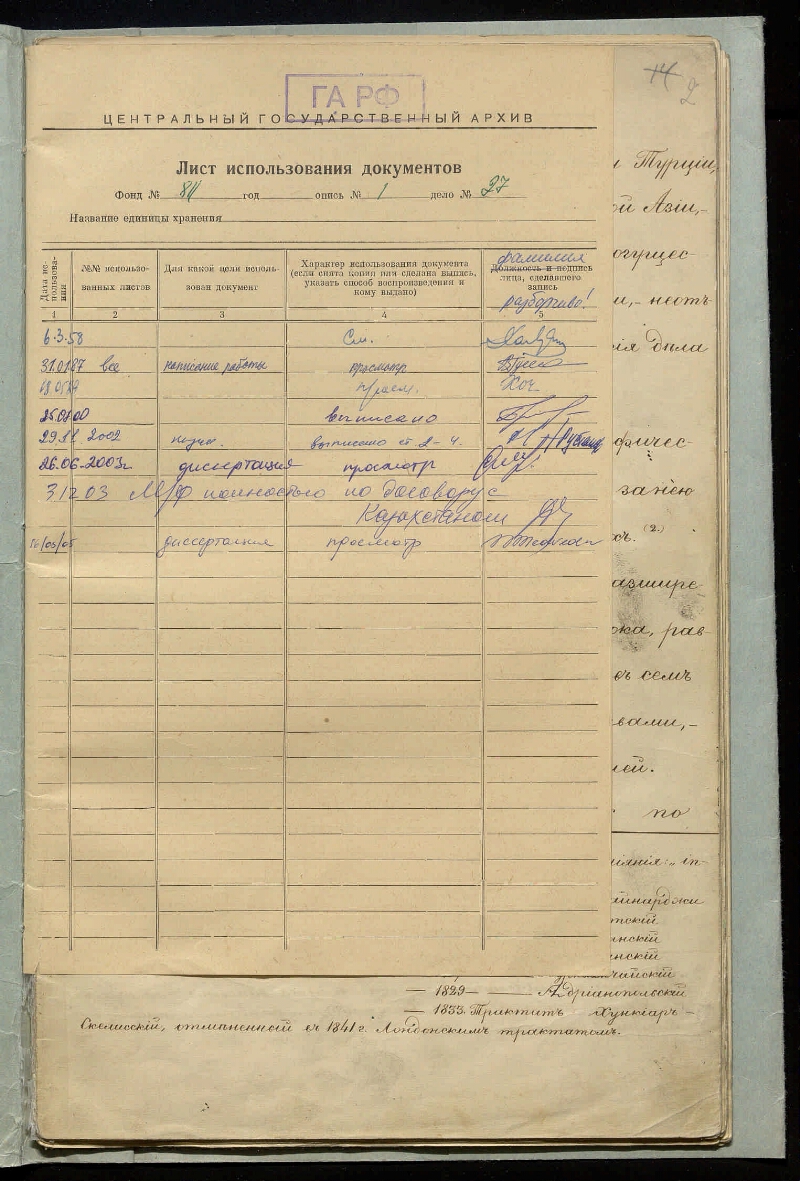 ГА РФ
ЦЕНТРАЛЬНЫЙ ГОСУДАРСТВЕННЫЙ АРХИВ
Лист использования документов
Фонд № год опись № 1 дело № 27
Название единицы хранения
Дата использования
№№ использованных листов
Для какой цели использован документ
Характер использования документа
(если снята копия или сделана выпись,
указать способ воспроизведения и
кому выдано)
фамилия
Должность и подпись
лица, сделавшего
запись
разборчиво!
1 2 3 4 5
6.3.58 См.
31.01.87 все написание работы просмотр
просм.
выписано
2002 выписано 2-4.
26.06.2003г диссертация просмотр
3 12 03 полностью по договору с
Казахстаном
16/05/05 диссертация просмотр
14 2
и Турціи,
ой Азіи,-
огущес-
и,- неотъ-
ія дѣла
фичес-
занею
хъ. (2.)
азшире-
ока, рав-
въ семъ
вами,-
лей.
по
іянія: „ in-
айнарджи
тскій
инскій
нскій
чайскій
— 1829 — Адріанопольскій
— 1833. Трактатъ Хункіаръ-
Скелисскій, отмѣненный въ 1841 г. Лондонскимъ трактатомъ.